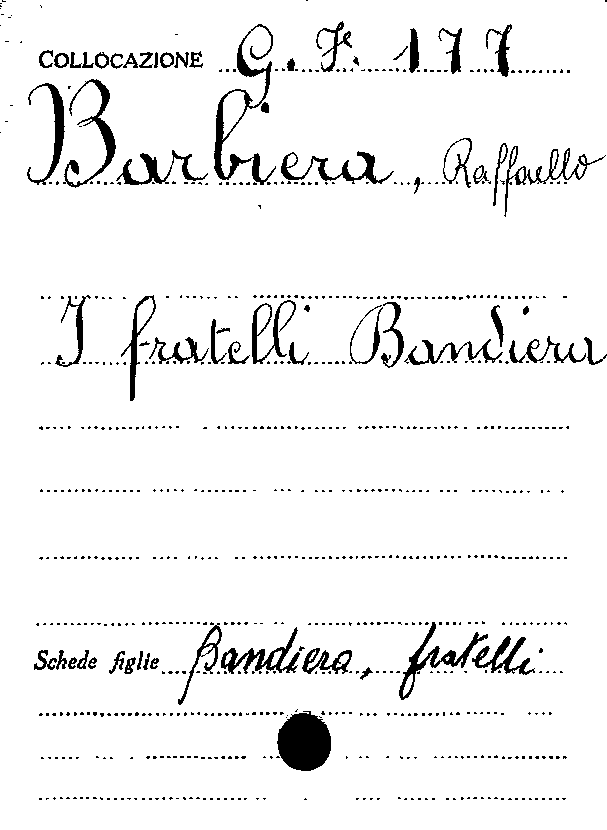 COLLOCAZIONE G. F. 177
Barbiera, Raffaello
I fratelli Bandiera
Schede figlie Bandiera, fratelli